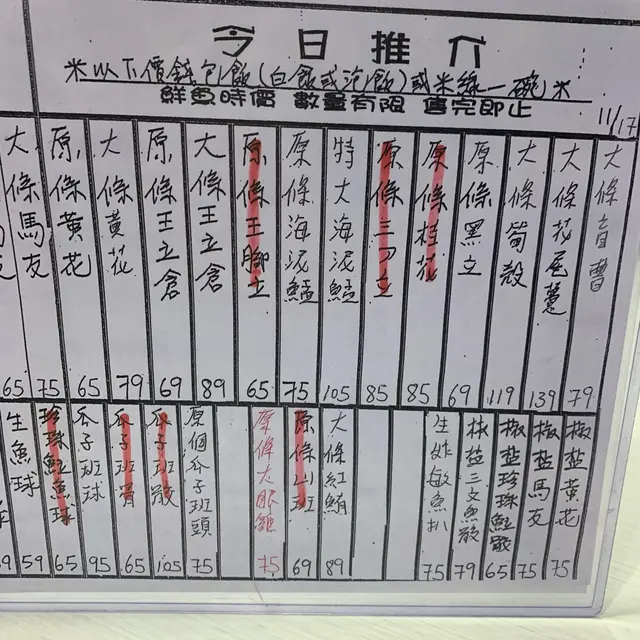 今日推介
米以下價錢包飯(白飯或泡飯)或米線一碗米
鮮魚時價 數量有限 售完即止
11/17
大條盲曹
79
大條花尾躉
139
大條筍殼
119
原條黑立
69
原條桂花
85
原條三刀立
85
特大海泥鯭
105
原條海泥鯭
75
原條王腳立
65
大條王立倉
89
原條王立倉
69
大條黃花
79
原條黃花
65
大條馬友
75
友
65
椒盐黃花
75
椒盐馬友
75
椒盐珍珠魟散
65
椒盐三文魚散
79
生炸敏魚扒
75
大條紅鮋
89
原條山班
69
原條大眼雞
75
原個瓜子班頭
75
瓜子班散
105
瓜子班骨
65
瓜子班球
95
珍珠魟魚球
65
生魚球
59